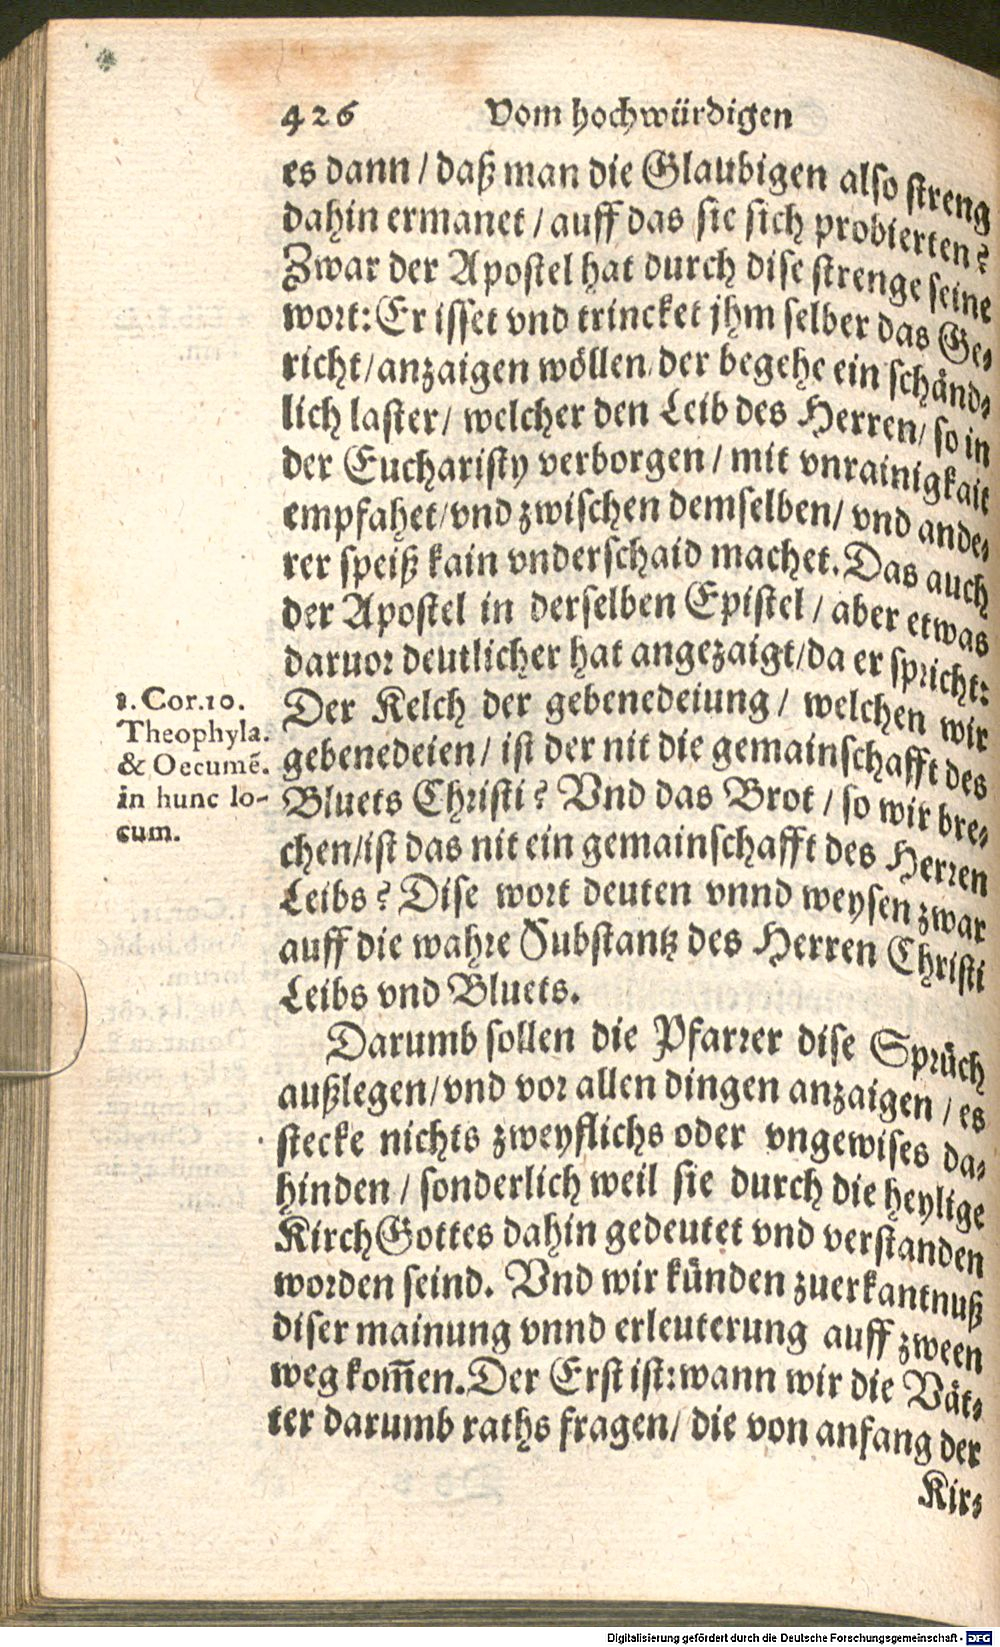 426 Vom hochwürdigen
es dann / daß man die Glaubigen also streng
dahin ermanet / auff das sie sich probierten?
Zwar der Apostel hat durch dise strenge seine
wort: Er isset vnd trincket jhm selber das Ge-
richt / anzaigen wöllen / der begehe ein schänd-
lich laster / welcher den Leib des Herren / so in
der Eucharisty verborgen / mit vnrainigkait
empfahet / vnd zwischen demselben / vnd ande-
rer speiß kain vnderschaid machet. Das auch
der Apostel in derselben Epistel / aber etwas
daruor deutlicher hat angezaigt / da er spricht:
Der Kelch der gebenedeiung / welchen wir
gebenedeien / ist der nit die gemainschafft des
Bluets Christi? Vnd das Brot / so wir bre-
chen / ist das nit ein gemainschafft des Herren
Leibs? Dise wort deuten vnnd weysen zwar
auff die wahre Substantz des Herren Christi
Leibs vnd Bluets.
1. Cor. 10.
Theophyla.
& Oecumē.
in hunc lo-
cum.
Darumb sollen die Pfarrer dise Sprüch
außlegen / vnd vor allen dingen anzaigen / es
stecke nichts zweyflichs oder vngewises da-
hinden / sonderlich weil sie durch die heylige
Kirch Gottes dahin gedeutet vnd verstanden
worden seind. Vnd wir künden zuerkantnuß
diser mainung vnnd erleuterung auff zween
weg kom̄en. Der Erst ist: wann wir die Vät-
ter darumb raths fragen / die von anfang der
Kir-
Digitalisierung gefördert durch die Deutsche Forschungsgemeinschaft - DFG